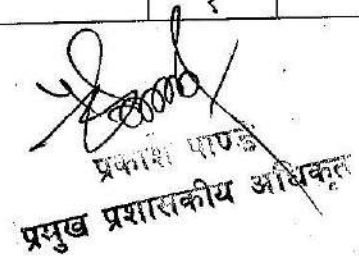 १
प्रकाश पाण्डे
प्रमुख प्रशासकीय अधिकृत